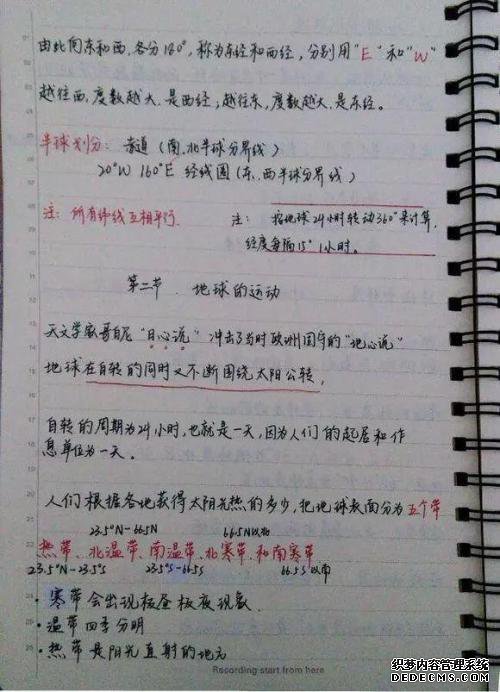 由此向东和西,各分180°,称为东经和西经,分别用"E"和"W"
越往西,度数越大,是西经;越往东,度数越大,是东经。
半球划分: 赤道(南、北半球分界线)
20°W 160°E 经线圈(东、西半球分界线)
注: 所有纬线互相平行. 注: 按地球24小时转动360°来计算,
经度每隔15° 1小时。
第二节 . 地球的运动
天文学家哥白尼"日心说"冲击了当时欧洲固有的"地心说"
地球在自转的同时又不断围绕太阳公转,
自转的周期为24小时,也就是一天,因为人们的起居和作
息单位为一天.
人们根据各地获得太阳光热的多少,把地球表面分为五个带
23.5°N—66.5N 66.5N以北
热带、北温带、南温带、北寒带、和南寒带
23.5°N-23.5°S 23.5°S-66.5S 66.5S以南
·寒带会出现极昼极夜现象.
·温带四季分明
·热带是阳光直射的地方
Recording start from here
织梦内容管理系统
DEDECMS.COM